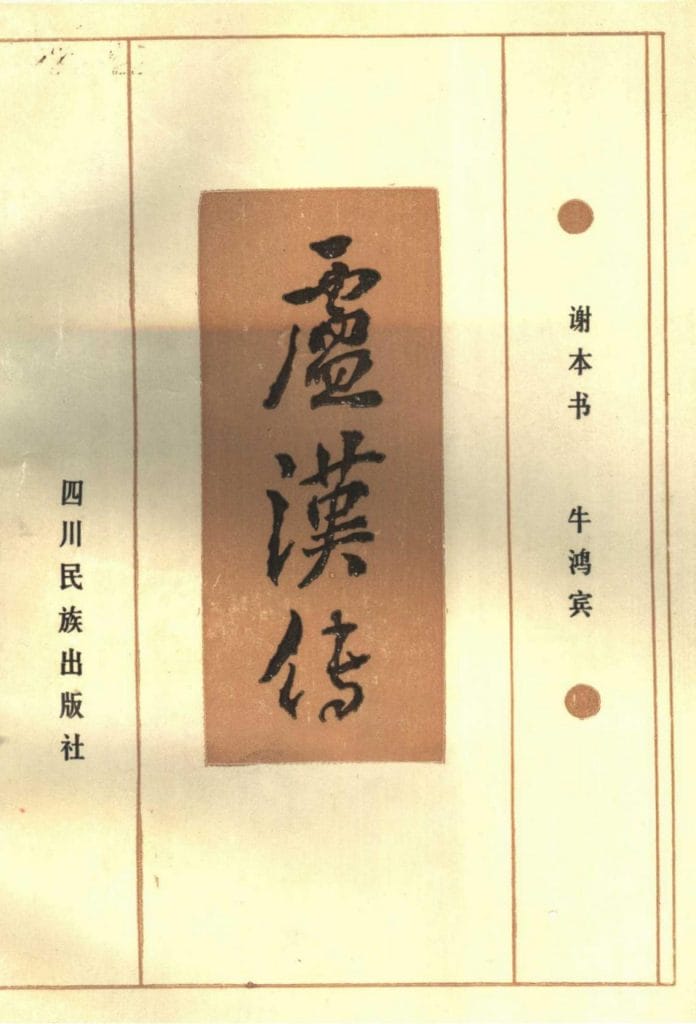 谢本书 牛鸿宾
盧漢传
四川民族出版社